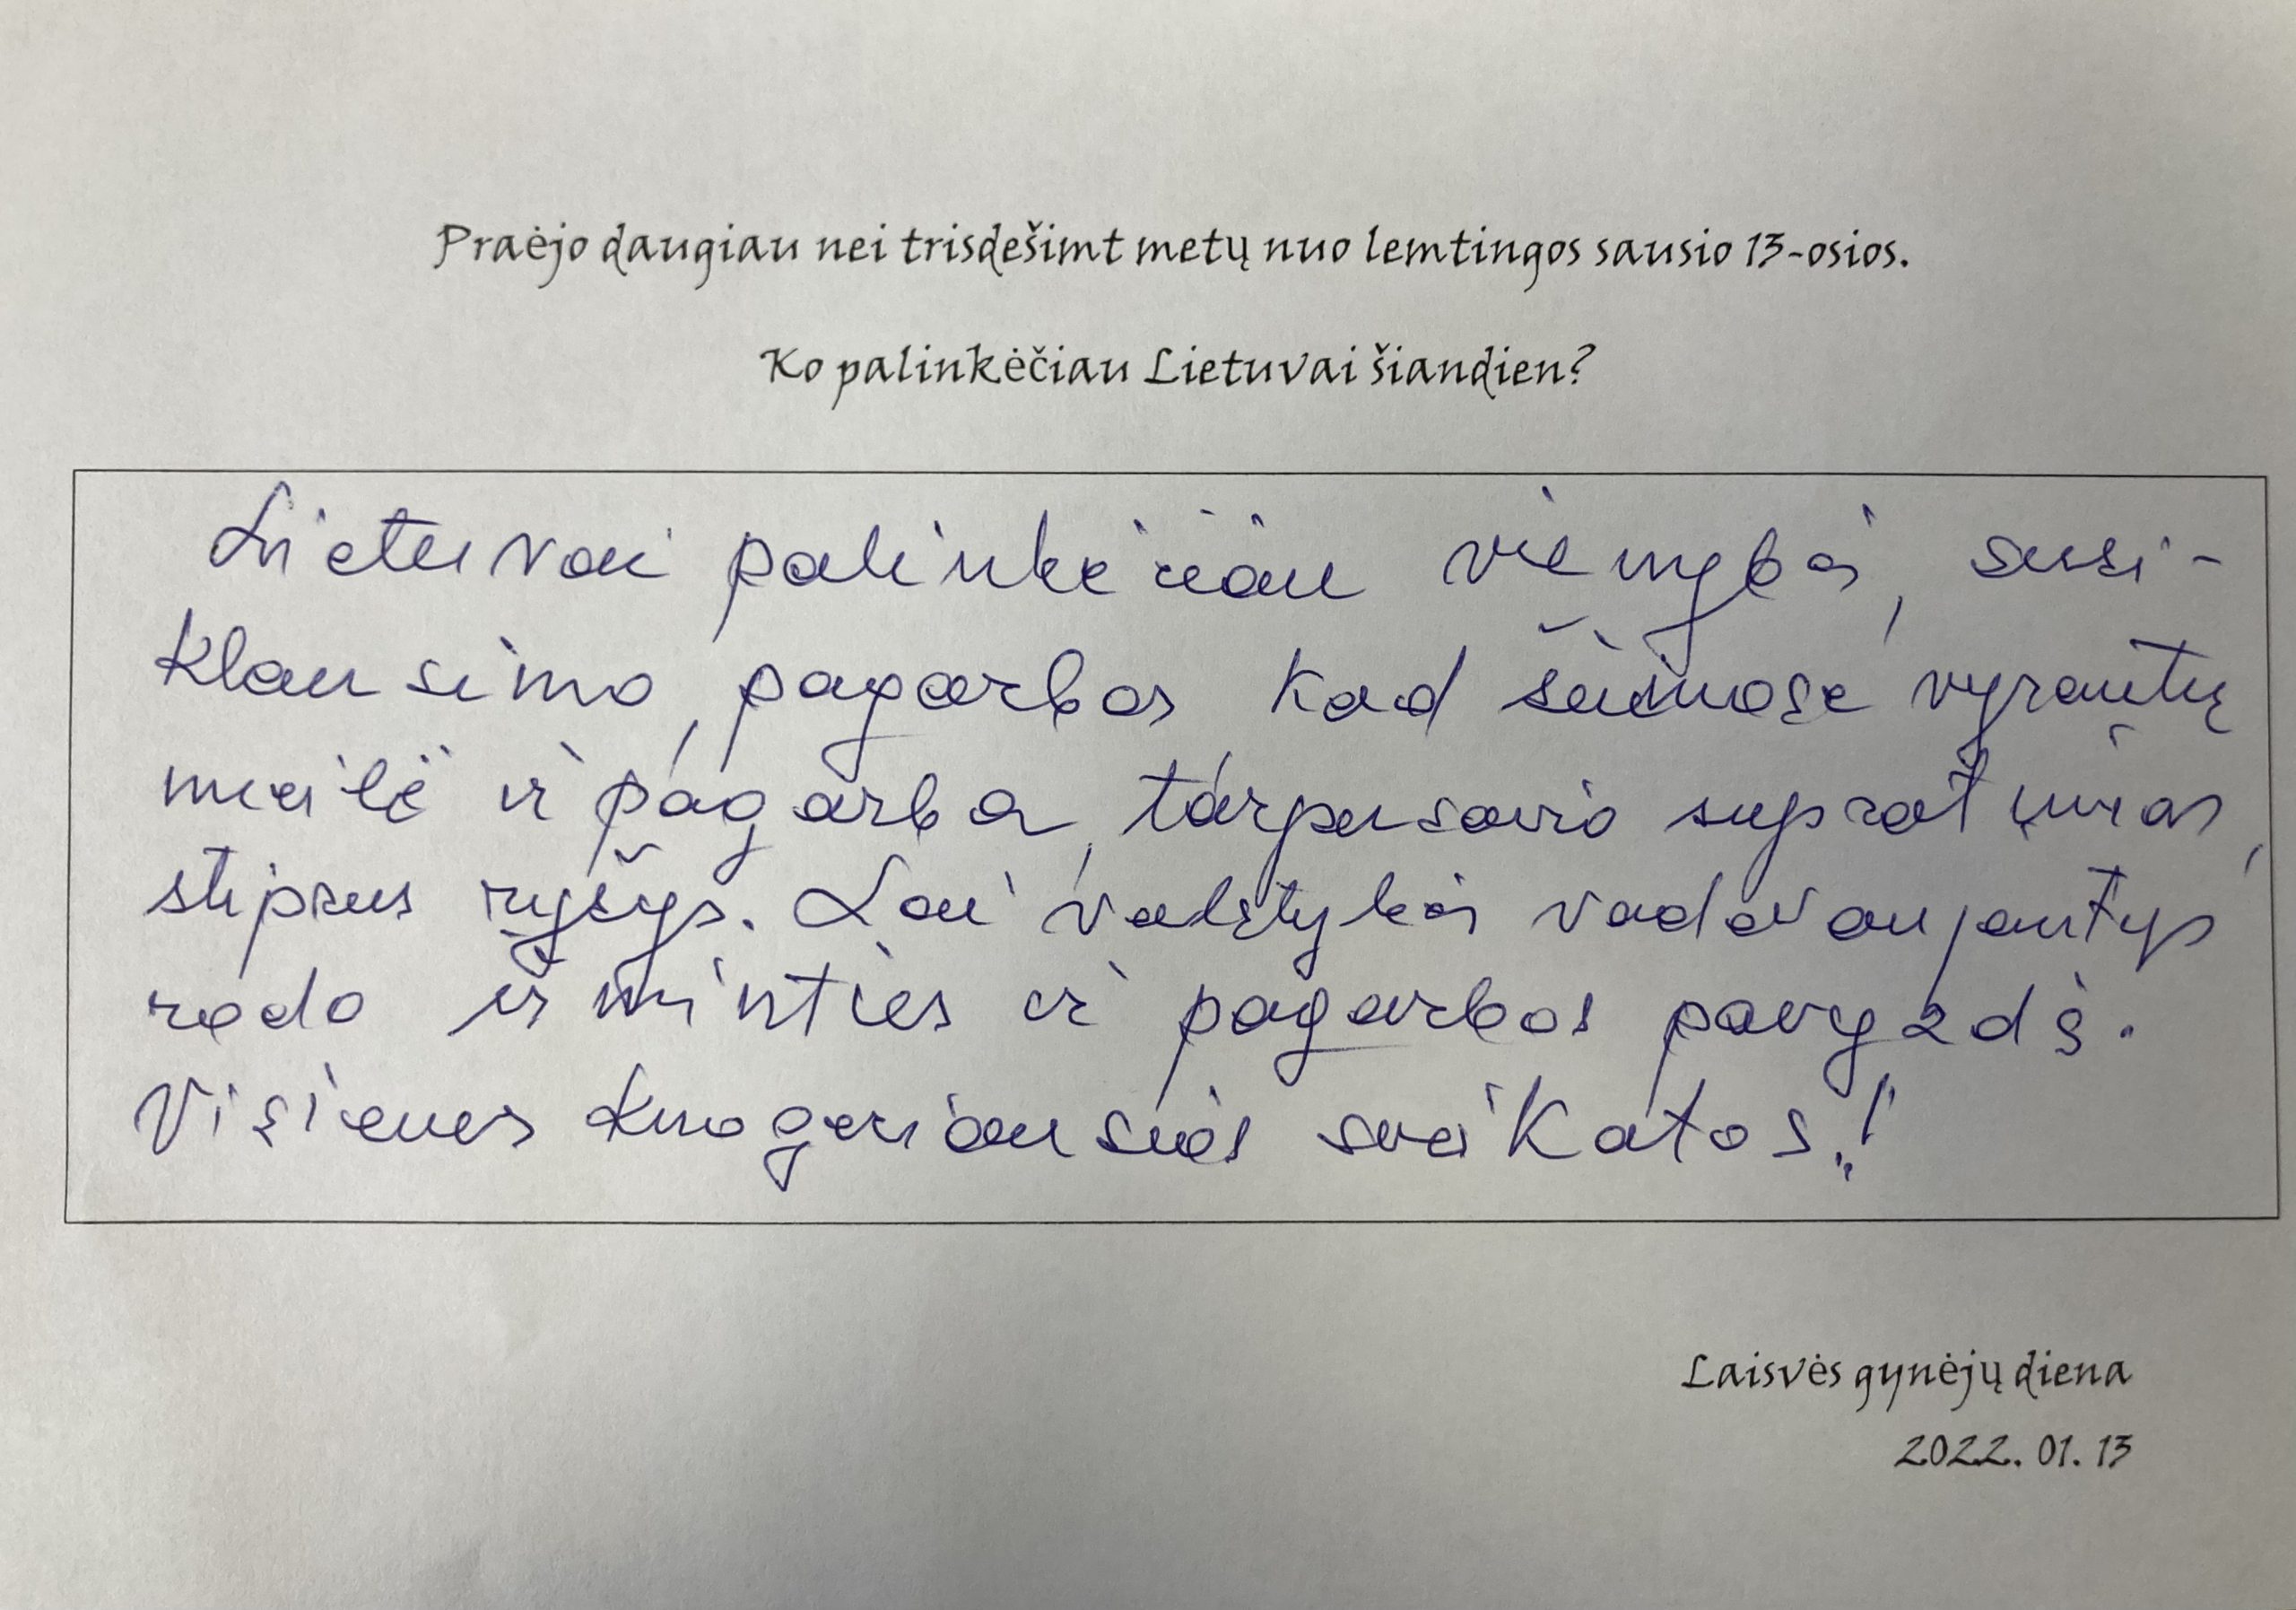 Praėjo daugiau nei trisdešimt metų nuo lemtingos sausio 13-osios.
Ko palinkėčiau Lietuvai šiandien?
Lietuvai palinkėčiau vienybės, susi-
klausimo, pagarbos kad šeimose vyrautų
meilė ir pagarba, tarpusavio supratimas,
stiprus ryšys. Lai valstybės vadovaujantys
rodo išminties ir pagarbos pavyzdį.
Visiems kuogeriausios sveikatos!
Laisvės gynėjų diena
2022. 01. 13